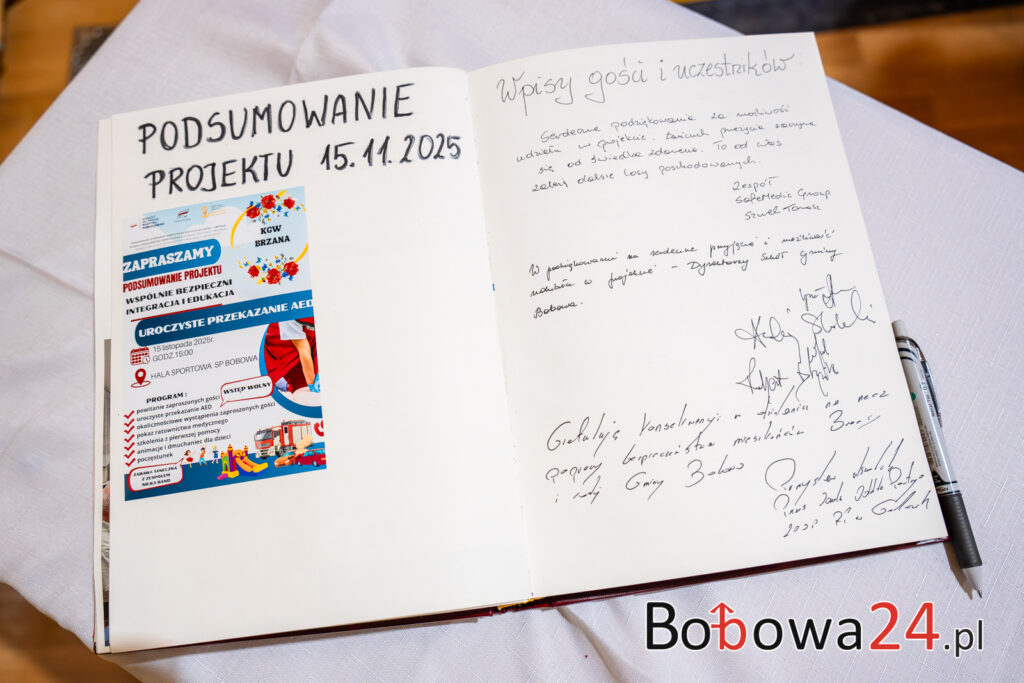 PODSUMOWANIE
PROJEKTU 15.11.2025
KGW
BRZANA
ZAPRASZAMY
PODSUMOWANIE PROJEKTU
WSPÓLNIE BEZPIECZNI
INTEGRACJA I EDUKACJA
UROCZYSTE PRZEKAZANIE AED
15 listopada 2025r.
GODZ.15:00
HALA SPORTOWA SP BOBOWA
WSTĘP WOLNY
PROGRAM :
powitanie zaproszonych gości
uroczyste przekazanie AED
okolicznościowe wystąpienia zaproszonych gości
pokaz ratownictwa medycznego
szkolenia z pierwszej pomocy
animacje i dmuchaniec dla dzieci
poczęstunek
ZABAWA TANECZNA
Z ZESPOŁEM
Wpisy gości i uczestników
Serdeczne podziękowania za możliwość
udziału w projekcie. Łańcuch przeżycia zaczyna
się od świadka zdarzenia. To od Was
zależą dalsze losy poszkodowanych.
Zespół
SafeMedic Group
W podziękowaniu za serdeczne przyjęcie i możliwość
udziału w projekcie - Dyrektorzy Szkół Gminy
Bobowa.
Gratuluję konsekwencji w działaniu na rzecz
poprawy bezpieczeństwa mieszkańców Brzany
i całej Gminy Bobowa
Bobowa24.pl